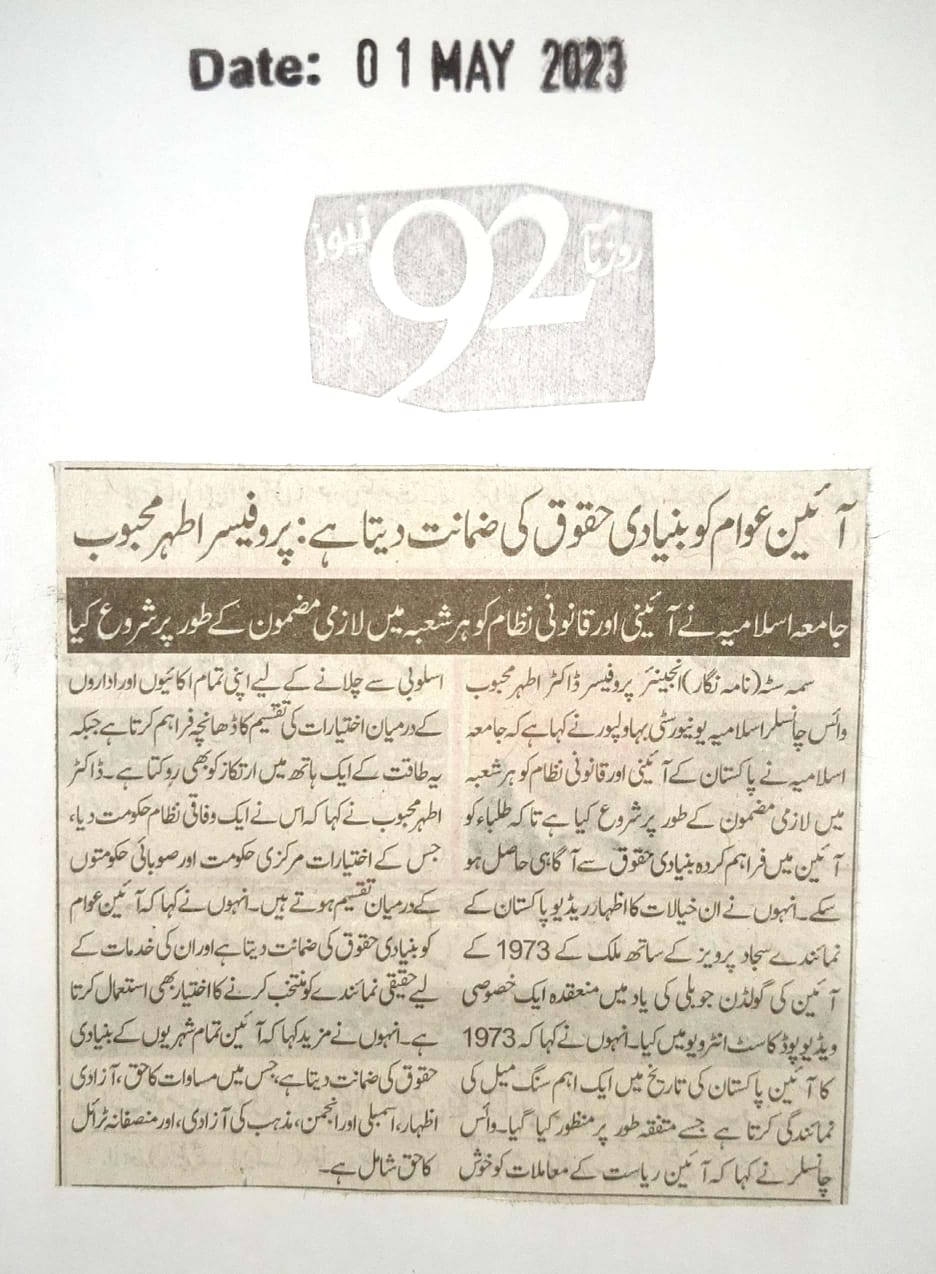 Date: 01 MAY 2023
روزنامہ 92 نیوز
آئین عوام کو بنیادی حقوق کی ضمانت دیتا ہے: پروفیسر اطہر محبوب
جامعہ اسلامیہ نے آئینی اور قانونی نظام کو ہر شعبہ میں لازمی مضمون کے طور پر شروع کیا
سمہ سٹہ (نامہ نگار) انجینئر پروفیسر ڈاکٹر اطہر محبوب
وائس چانسلر اسلامیہ یونیورسٹی بہاولپور نے کہا ہے کہ جامعہ
اسلامیہ نے پاکستان کے آئینی اور قانونی نظام کو ہر شعبہ
میں لازمی مضمون کے طور پر شروع کیا ہے تاکہ طلباء کو
آئین میں فراہم کردہ بنیادی حقوق سے آگاہی حاصل ہو
سکے۔ انہوں نے ان خیالات کا اظہار ریڈیو پاکستان کے
نمائندے سجاد پرویز کے ساتھ ملک کے 1973 کے
آئین کی گولڈن جوبلی کی یاد میں منعقدہ ایک خصوصی
ویڈیو پوڈ کاسٹ انٹرویو میں کیا۔ انہوں نے کہا کہ 1973
کا آئین پاکستان کی تاریخ میں ایک اہم سنگ میل کی
نمائندگی کرتا ہے جسے متفقہ طور پر منظور کیا گیا۔ وائس
چانسلر نے کہا کہ آئین ریاست کے معاملات کو خوش
اسلوبی سے چلانے کے لیے اپنی تمام اکائیوں اور اداروں
کے درمیان اختیارات کی تقسیم کا ڈھانچہ فراہم کرتا ہے جبکہ
یہ طاقت کے ایک ہاتھ میں ارتکاز کو بھی روکتا ہے۔ ڈاکٹر
اطہر محبوب نے کہا کہ اس نے ایک وفاقی نظام حکومت دیا،
جس کے اختیارات مرکزی حکومت اور صوبائی حکومتوں
کے درمیان تقسیم ہوتے ہیں۔ انہوں نے کہا کہ آئین عوام
کو بنیادی حقوق کی ضمانت دیتا ہے اور ان کی خدمات کے
لیے حقیقی نمائندے کو منتخب کرنے کا اختیار بھی استعمال کرتا
ہے۔ انہوں نے مزید کہا کہ آئین تمام شہریوں کے بنیادی
حقوق کی ضمانت دیتا ہے، جس میں مساوات کا حق، آزادی
اظہار، اسمبلی اور انجمن، مذہب کی آزادی، اور منصفانہ ٹرائل
کا حق شامل ہے۔